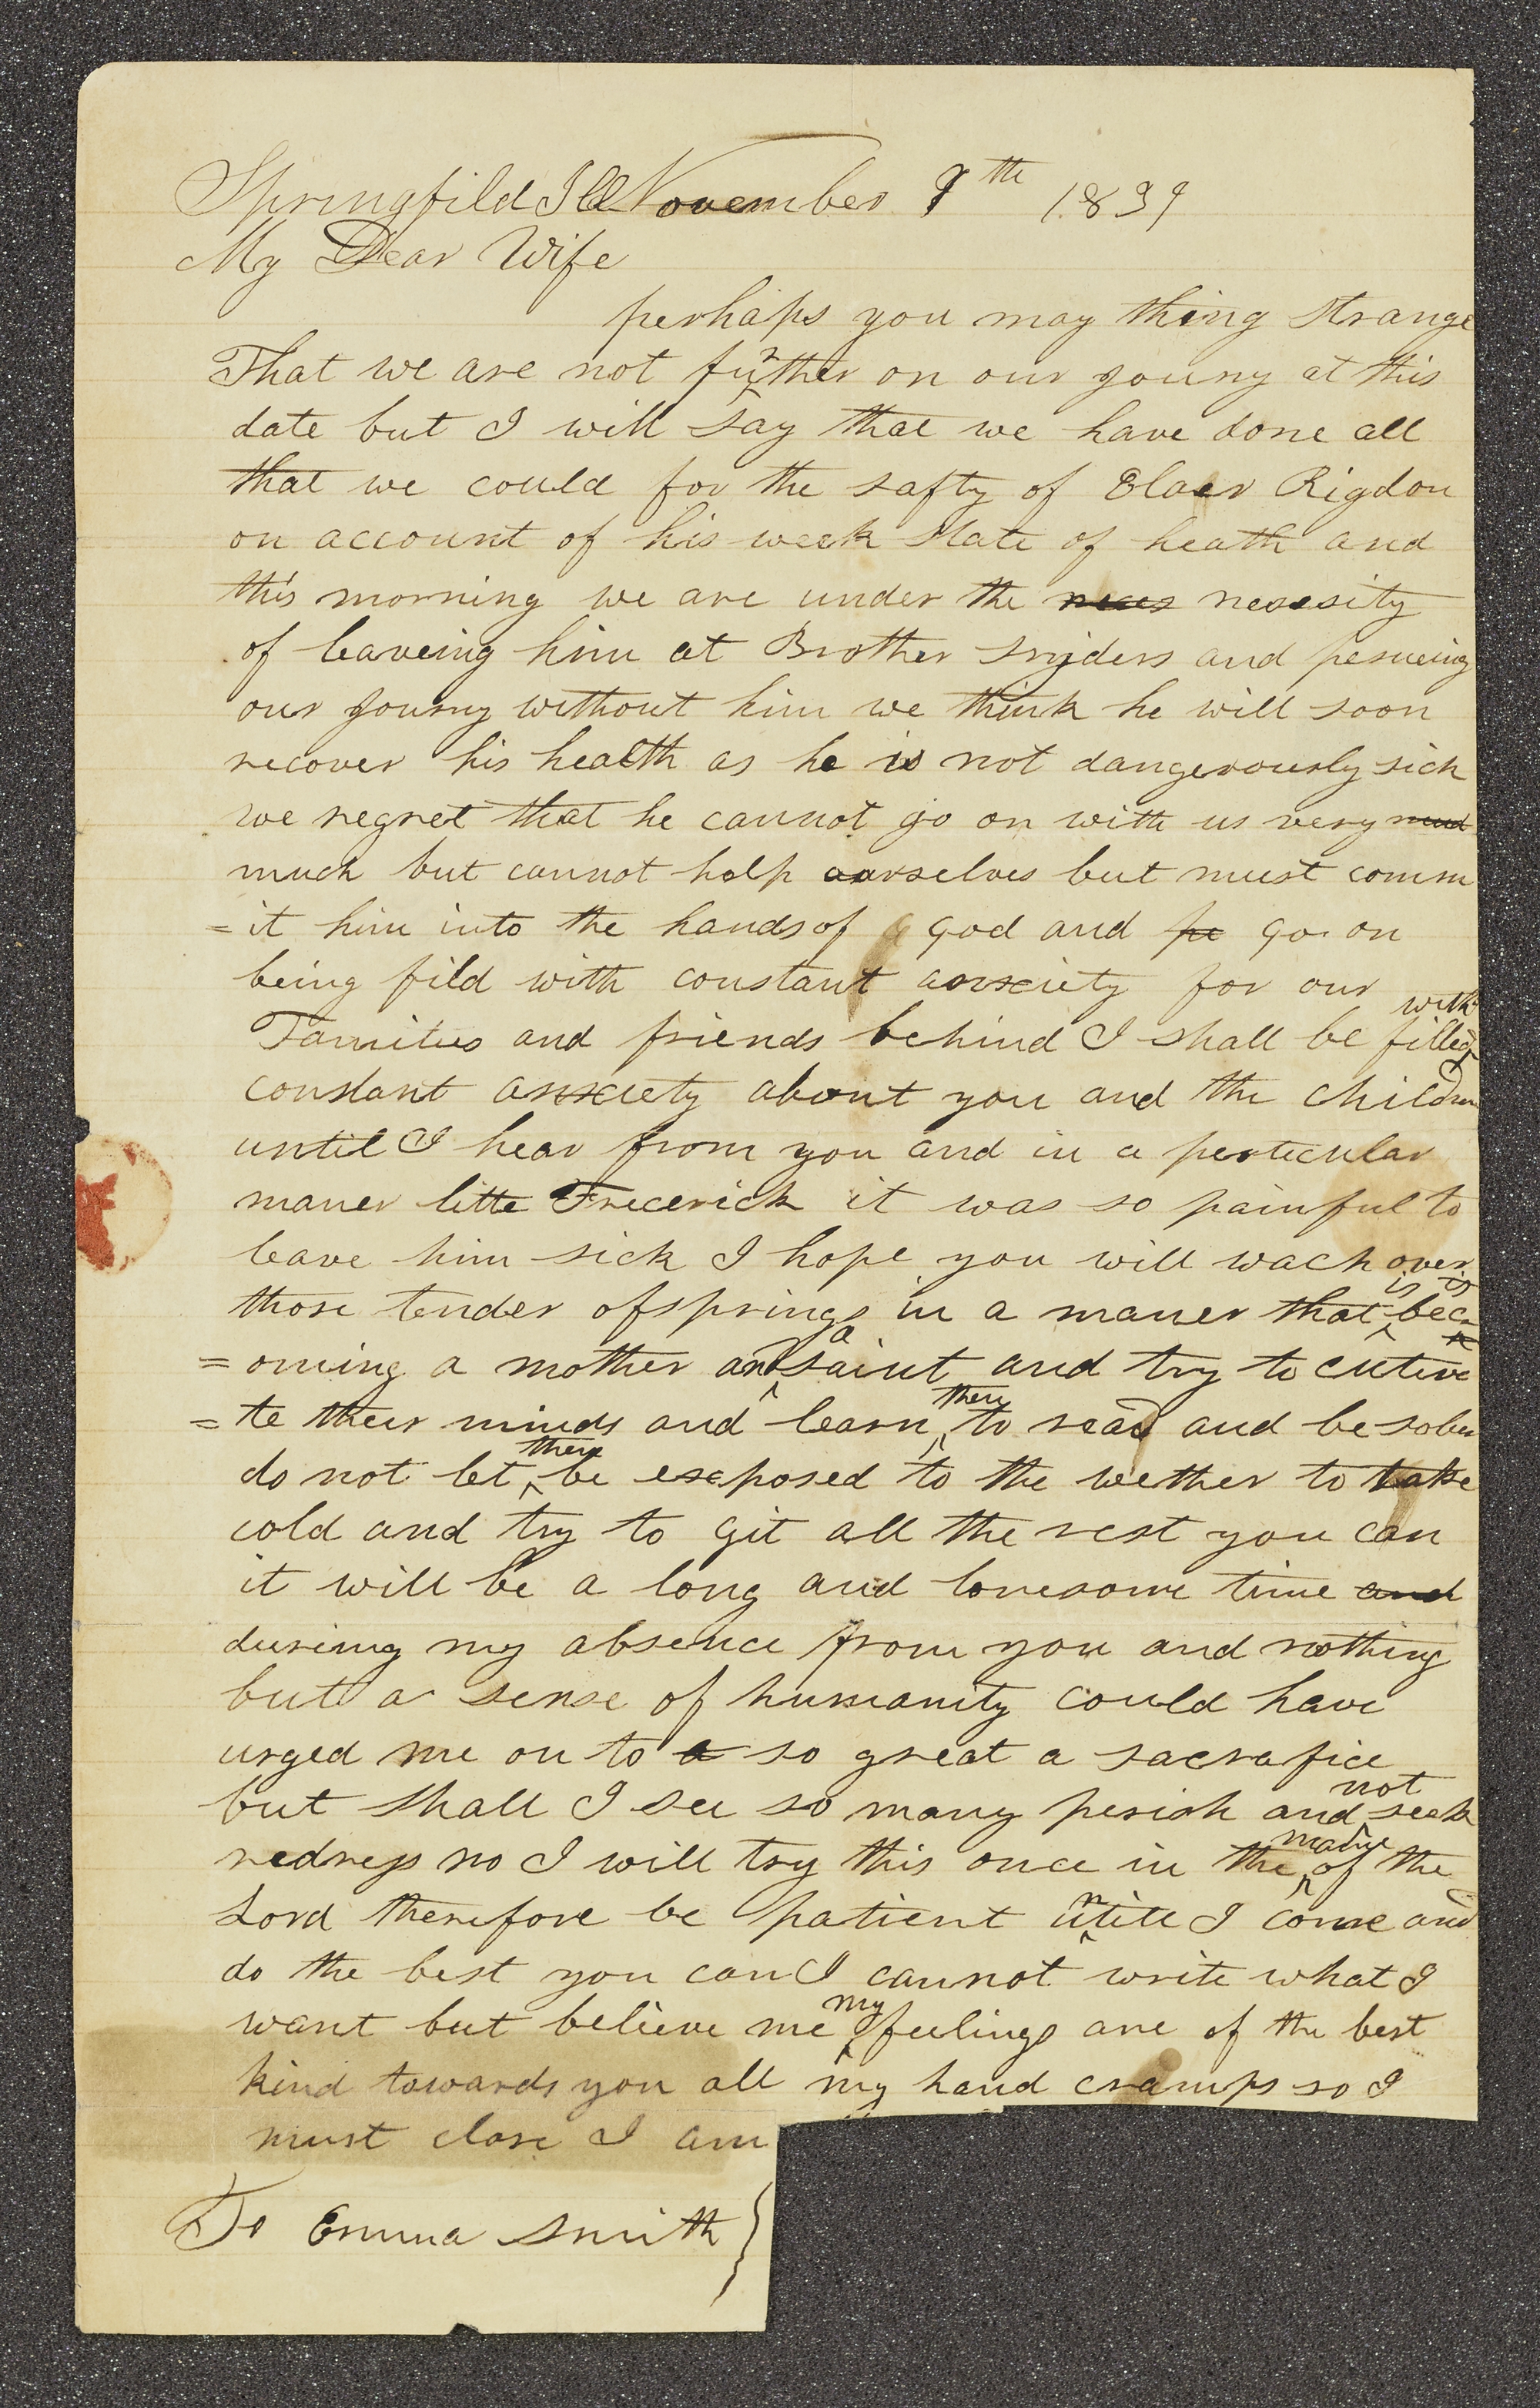 Springfild Ill November 9th 1839
My Dear Wife
perhaps you may thing strange
That we are not further on our jouny at this
date but I will say that we have done all
that we could for the safty of Elder Rigdon
on account of his week state of heath and
this morning we are under the neces nesesity
of leaveing him at Brother Snyders and pesueing
our journy without him we think he will soon
recover his health as he is not dangerously sick
we regret that he cannot go on with us very mud
much but cannot help ourselves but must comm
=it him into the hands of god and pe go on
being fild with constant anxciety for our
Families and friends behind I shall be filled with
constant anxciety about you and the children
until I hear from you and in a perticular
maner litte Frederick it was so painful to
leave him sick I hope you will wach over
those tender ofsprings in a maner that is bec
=oming a mother and a saint and try to cutiva
=te their minds and learn them to read and be sober
do not let them be exposed to the wether to take
cold and try to git all the rest you can
it will be a long and lonesome time and
dureing my absence from you and nothing
but a sense of humanity could have
urged me on to a so great a sacrafice
but shall I see so many perish and not seek
redress no I will try this once in the name of the
Lord therefore be patient untill I come and
do the best you can I cannot write what I
want but believe me my feelings are of the best
kind towards you all my hand cramps so I
must close I am
To Emma Smith }